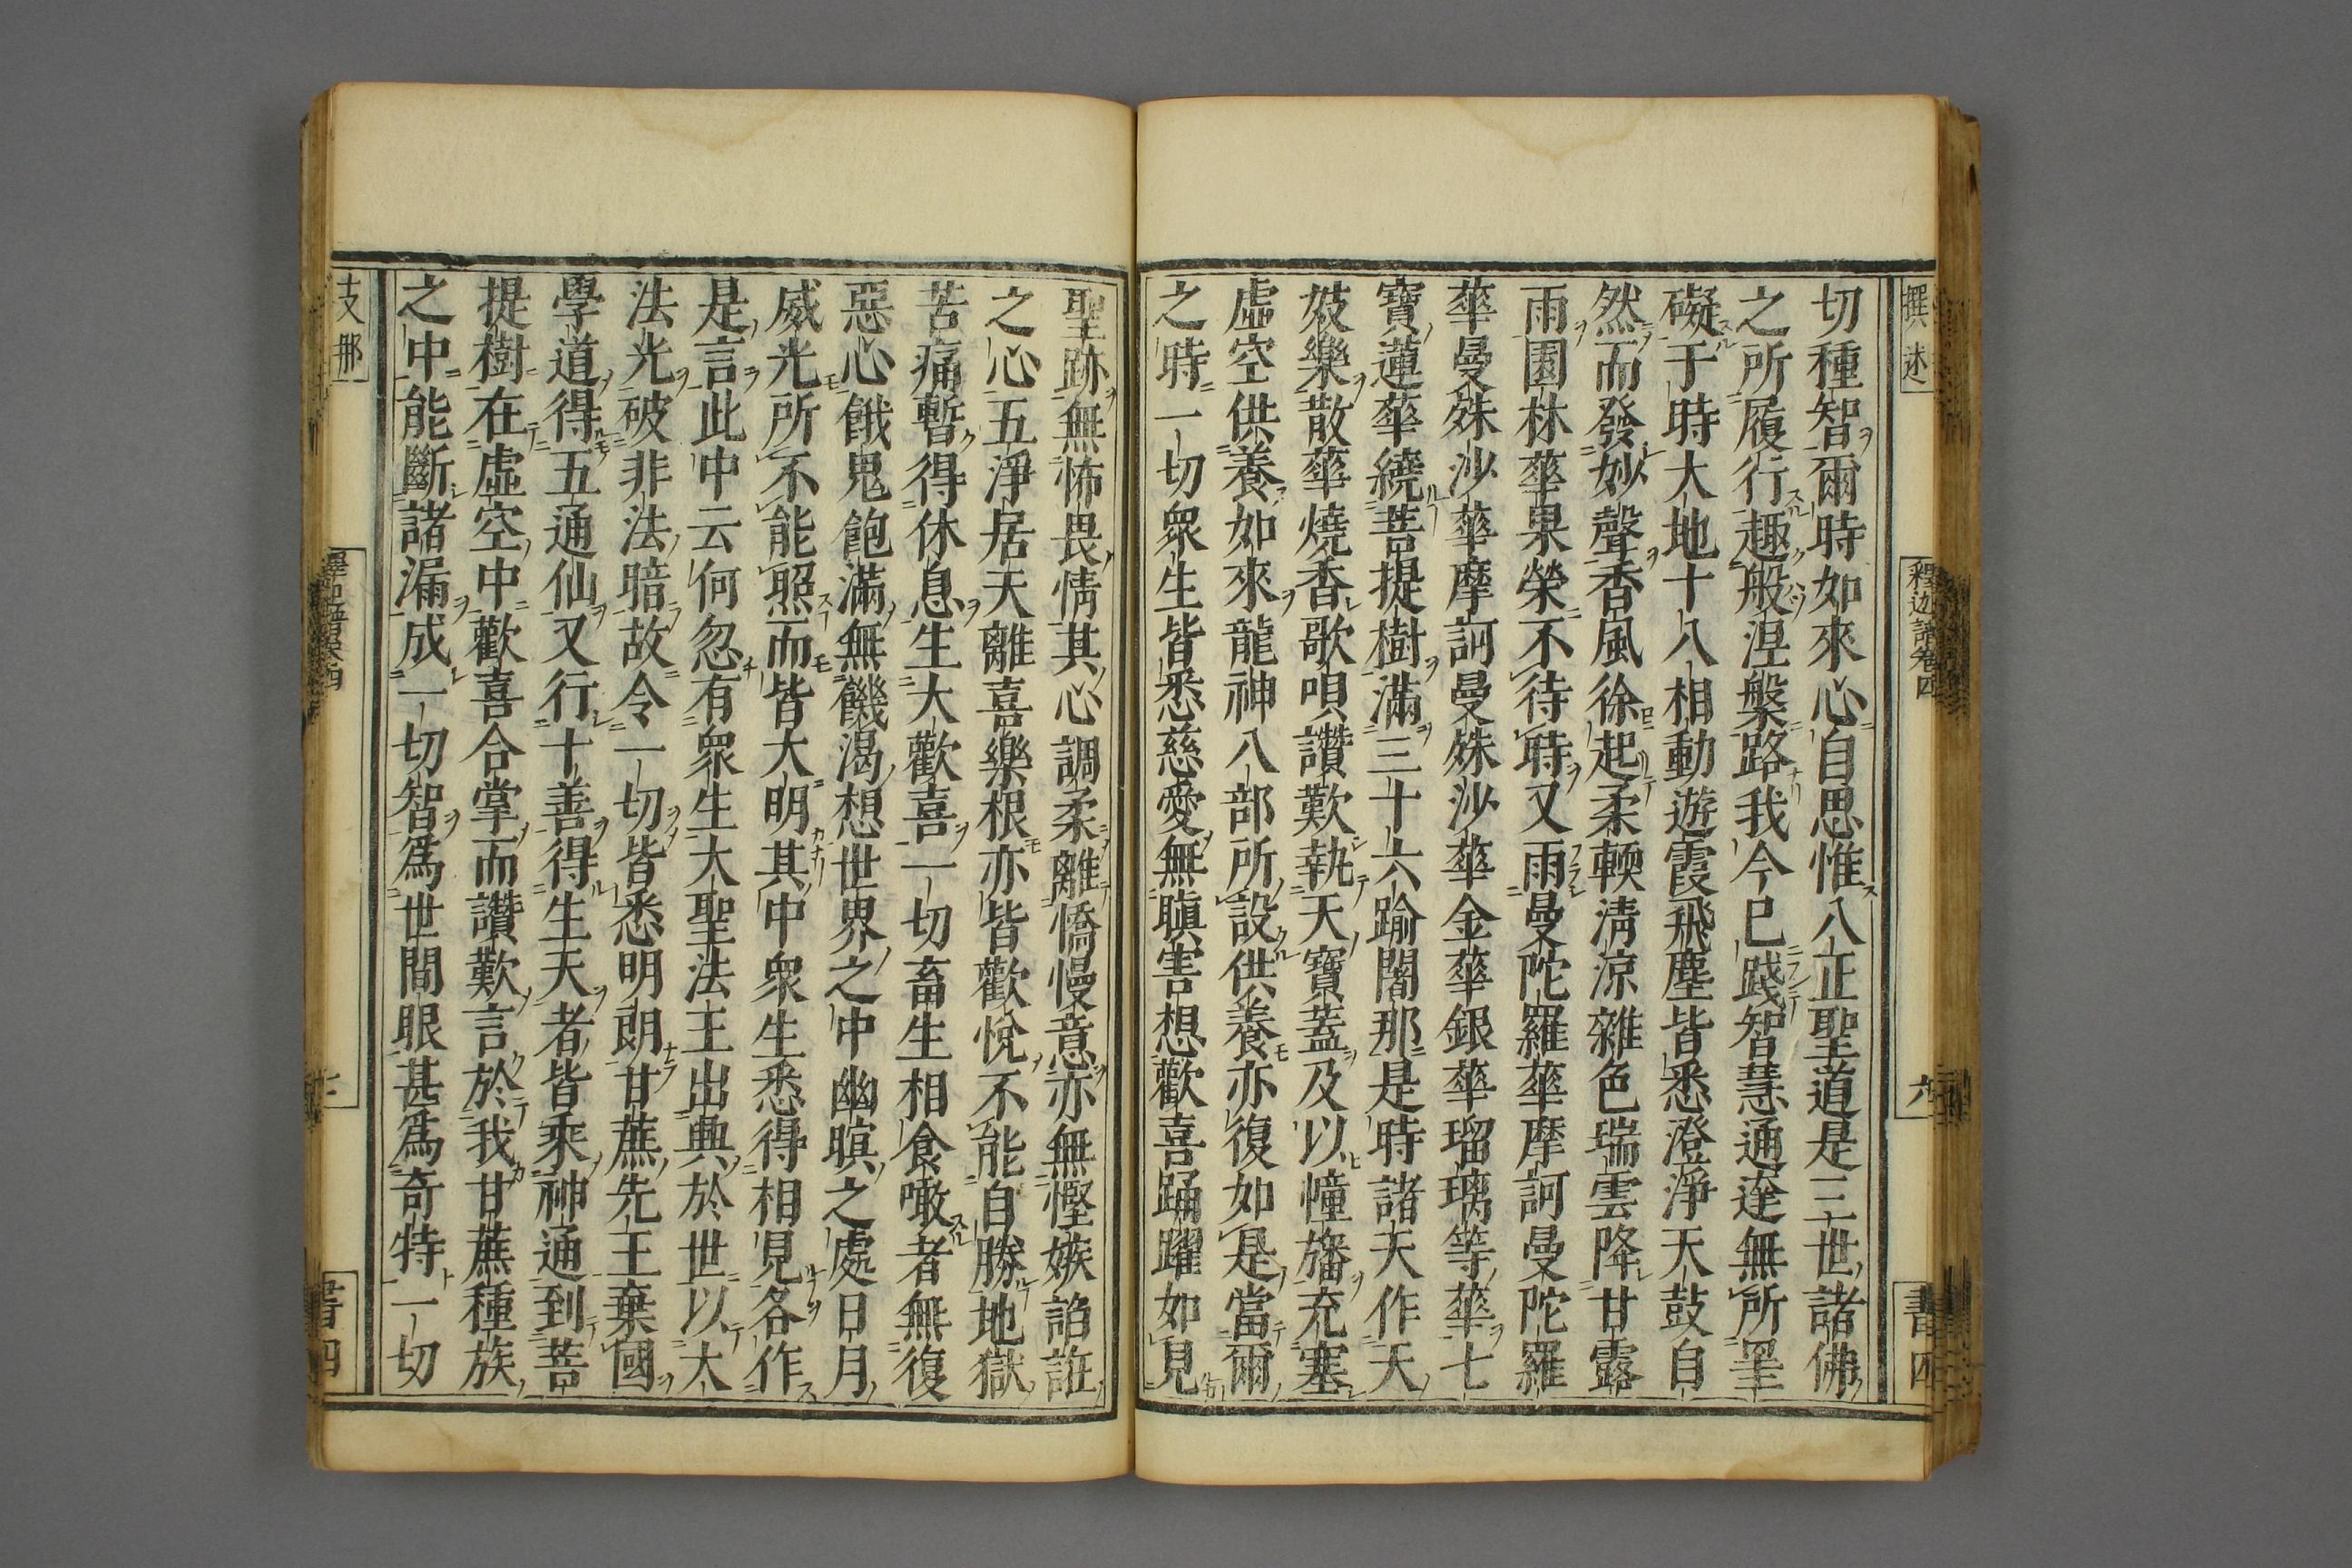 撰述
釋迦譜卷四
六
書四
切種智爾時如來心自思惟八正聖道是三世諸佛
之所履行趣般涅槃路我今已踐智慧通達無所罣
礙于時大地十八相動遊霞飛塵皆悉澄淨天鼓自
然而發妙聲香風徐起柔軟清涼雜色瑞雲降甘露
雨園林華果榮不待時又雨曼陀羅華摩訶曼陀羅
華曼殊沙華摩訶曼殊沙華金華銀華瑠璃等華七
寶蓮華繞菩提樹滿三十六踰闍那是時諸天作天
妓樂散華燒香歌唄讚歎執天寶蓋及以幢旛充塞
虛空供養如來龍神八部所設供養亦復如是當爾
之時一切衆生皆悉慈愛無瞋害想歡喜踊躍如見
聖跡無怖畏情其心調柔離憍慢意亦無慳嫉諂誑
之心五淨居天離喜樂根亦皆歡悅不能自勝地獄
苦痛暫得休息生大歡喜一切畜生相食噉者無復
惡心餓鬼飽滿無饑渴想世界之中幽暝之處日月
威光所不能照而皆大明其中衆生悉得相見各作
是言此中云何忽有衆生大聖法王出興於世以大
法光破非法暗故令一切皆悉明朗甘蔗先王棄國
學道得五通仙又行十善得生天者皆乘神通到菩
提樹在虛空中歡喜合掌而讚歎言於我甘蔗種族
之中能斷諸漏成一切智爲世間眼甚爲奇特一切
支那
書四